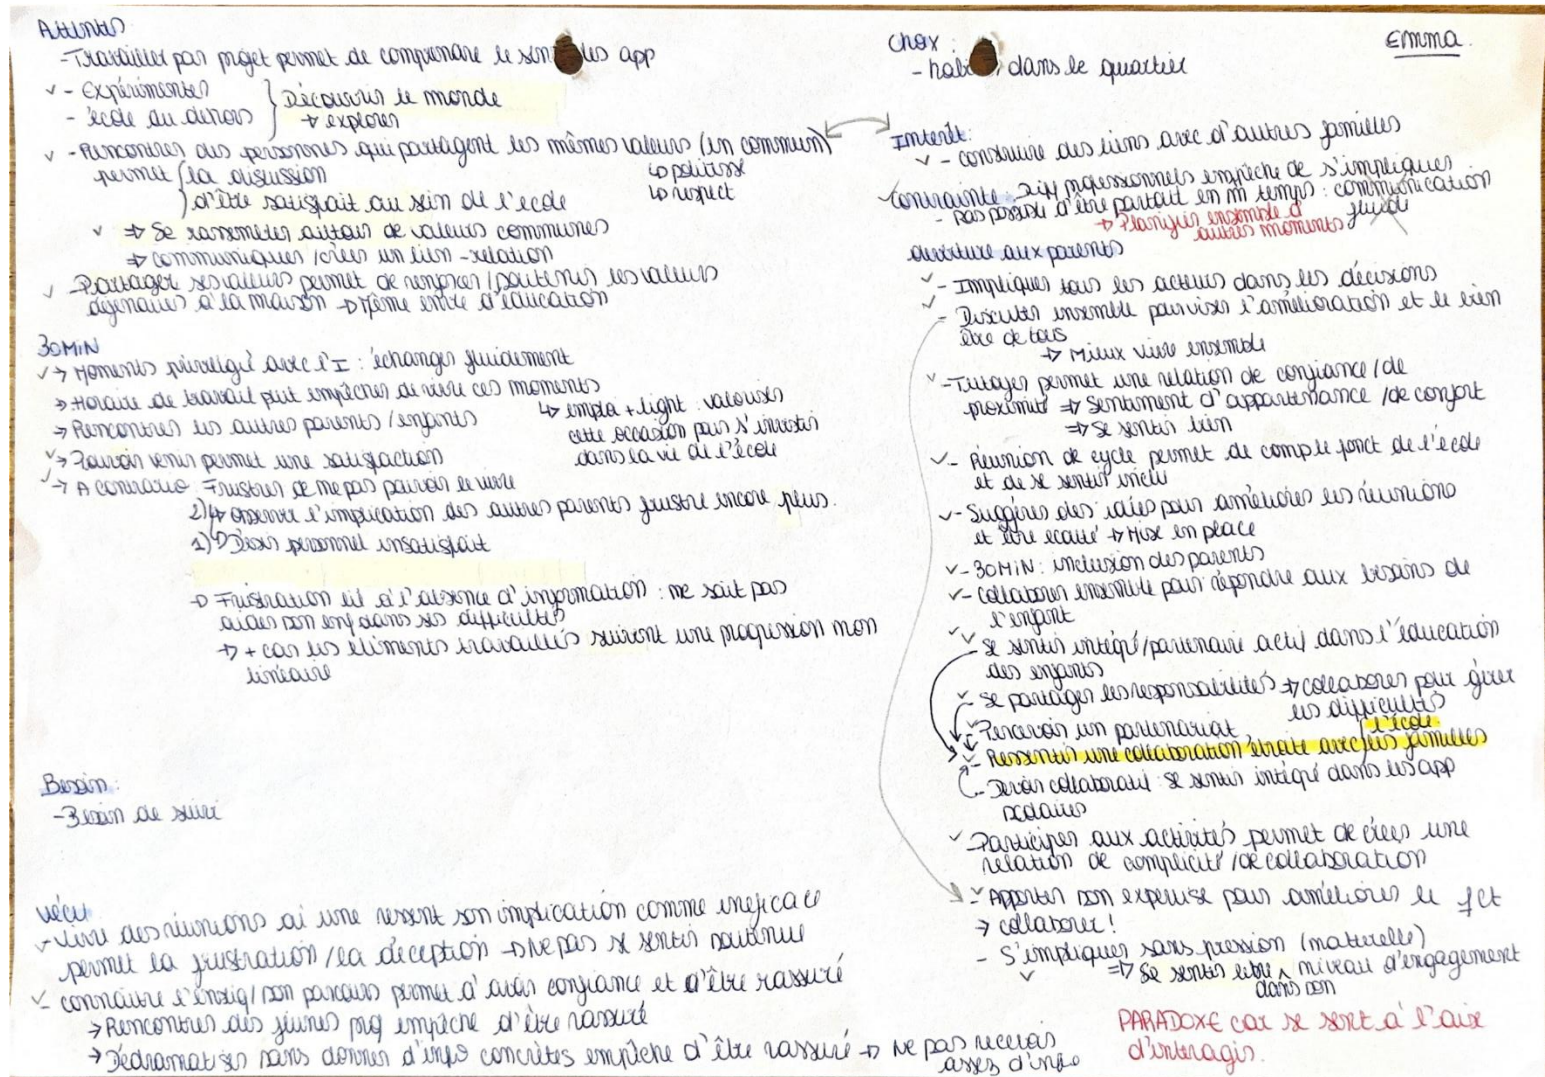 Attentes
- Travailler par projet permet de comprendre le sens des app
✓ - Expérimenter
- école du dehors
} Découvrir le monde
→ explorer
✓ - Rencontrer des personnes qui partagent les mêmes valeurs (en commun)
permet { la discussion
↳ politesse
} d'être satisfait au sein de l'école
↳ respect
✓ ⇒ Se rassembler autour de valeurs communes
⇒ communiquer / créer un lien - relation
✓ - Partager ses valeurs permet de renforcer / soutenir les valeurs
défendues à la maison → Même envie d'éducation
30MIN
✓ → Moments privilégié avec l'I : échanger fluidement
→ Horaire de travail peut empêcher de vivre ces moments
→ Rencontrer les autres parents / enfants
↳ emploi + light : valoriser
cette occasion pour s'investir
dans la vie de l'école
✓ → Pouvoir venir permet une satisfaction
✓ → A contrario : Frustrer de ne pas pouvoir le vivre
2) ↳ observer l'implication des autres parents frustre encore plus.
1) ↳ Désir personnel insatisfait
→ Frustration lié à l'absence d'information : ne sait pas
aider son enf dans ses difficultés
→ + car les éléments travaillés suivent une progression non
linéaire
Besoin :
- Besoin de suivi
Vécu
✓ - Vivre des réunions où une ressent son implication comme inefficace
permet la frustration / la déception → Ne pas se sentir soutenue
✓ - connaître l'enseig / son parcours permet d'avoir confiance et d'être rassuré
→ Rencontrer des jeunes prof empêche d'être rassuré
→ Dédramatiser sans donner d'info concrètes empêche d'être rassuré → Ne pas recevoir
assez d'info
Emma
Choix :
- habiter dans le quartier
Interêt :
✓ - construire des liens avec d'autres familles
✓ Contrainte : professionnels empêche de s'impliquer
- pas possible d'être partout en m̂ temps : communication
fluide
→ Planifier ensemble d'
autres moments
ouverture aux parents
✓ - Impliquer tous les acteurs dans les décisions
✓ - Discuter ensemble pour viser l'amélioration et le bien
être de tous
→ Mieux vivre ensemble
✓ - Tutoyer permet une relation de confiance / de
proximité ⇒ Sentiment d'appartenance / de confort
⇒ Se sentir bien
✓ - Réunion de cycle permet de comp le fonct de l'école
et de se sentir inclu
✓ - Suggérer des idées pour améliorer les réunions
et être écouté → Mise en place
✓ - 30MIN : inclusion des parents
✓ - Collaborer ensemble pour répondre aux besoins de
l'enfant
✓ Se sentir intégré / partenaire actif dans l'éducation
des enfants
✓ - Se partager les responsabilités → collaborer pour gérer
les difficultés
✓ - Percevoir un partenariat
✓ - Ressentir une collaboration étroite avec { l'école
les familles
- Devoir collaboratif : se sentir intégré dans les app
scolaires
✓ - Participer aux activités permet de créer une
relation de complicité / de collaboration
✓ - Apporter son expertise pour améliorer le fct
→ collaborer !
- S'impliquer sans pression (naturelle)
✓ ⇒ Se sentir libre ^ niveau d'engagement
dans son
PARADOXE car se sent à l'aise
d'interagir.